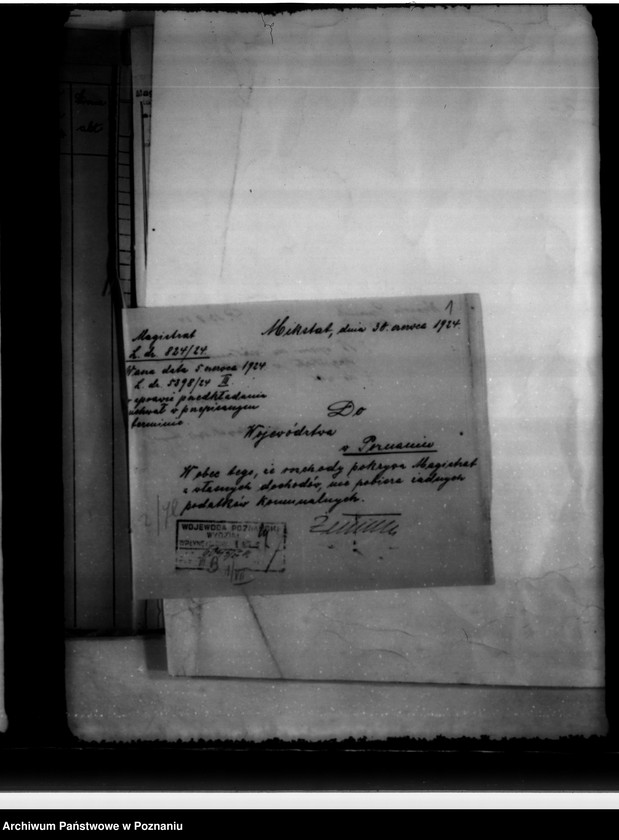 1
Magistrat
L. dz. 824/24.
Mikstat, dnia 30. czerwca 1924.
Wasza data 5 czerwca 1924
L. dz. 5398/24 II.
w sprawie przedkładania
uchwał w przepisanym
terminie
Do
Województwa
w Poznaniu
Wobec tego, że rozchody pokrywa Magistrat
z własnych dochodów, nie pobiera żadnych
podatków komunalnych.
WOJEWODA POZNAŃSKI
WYDZIAŁ
Archiwum Państwowe w Poznaniu